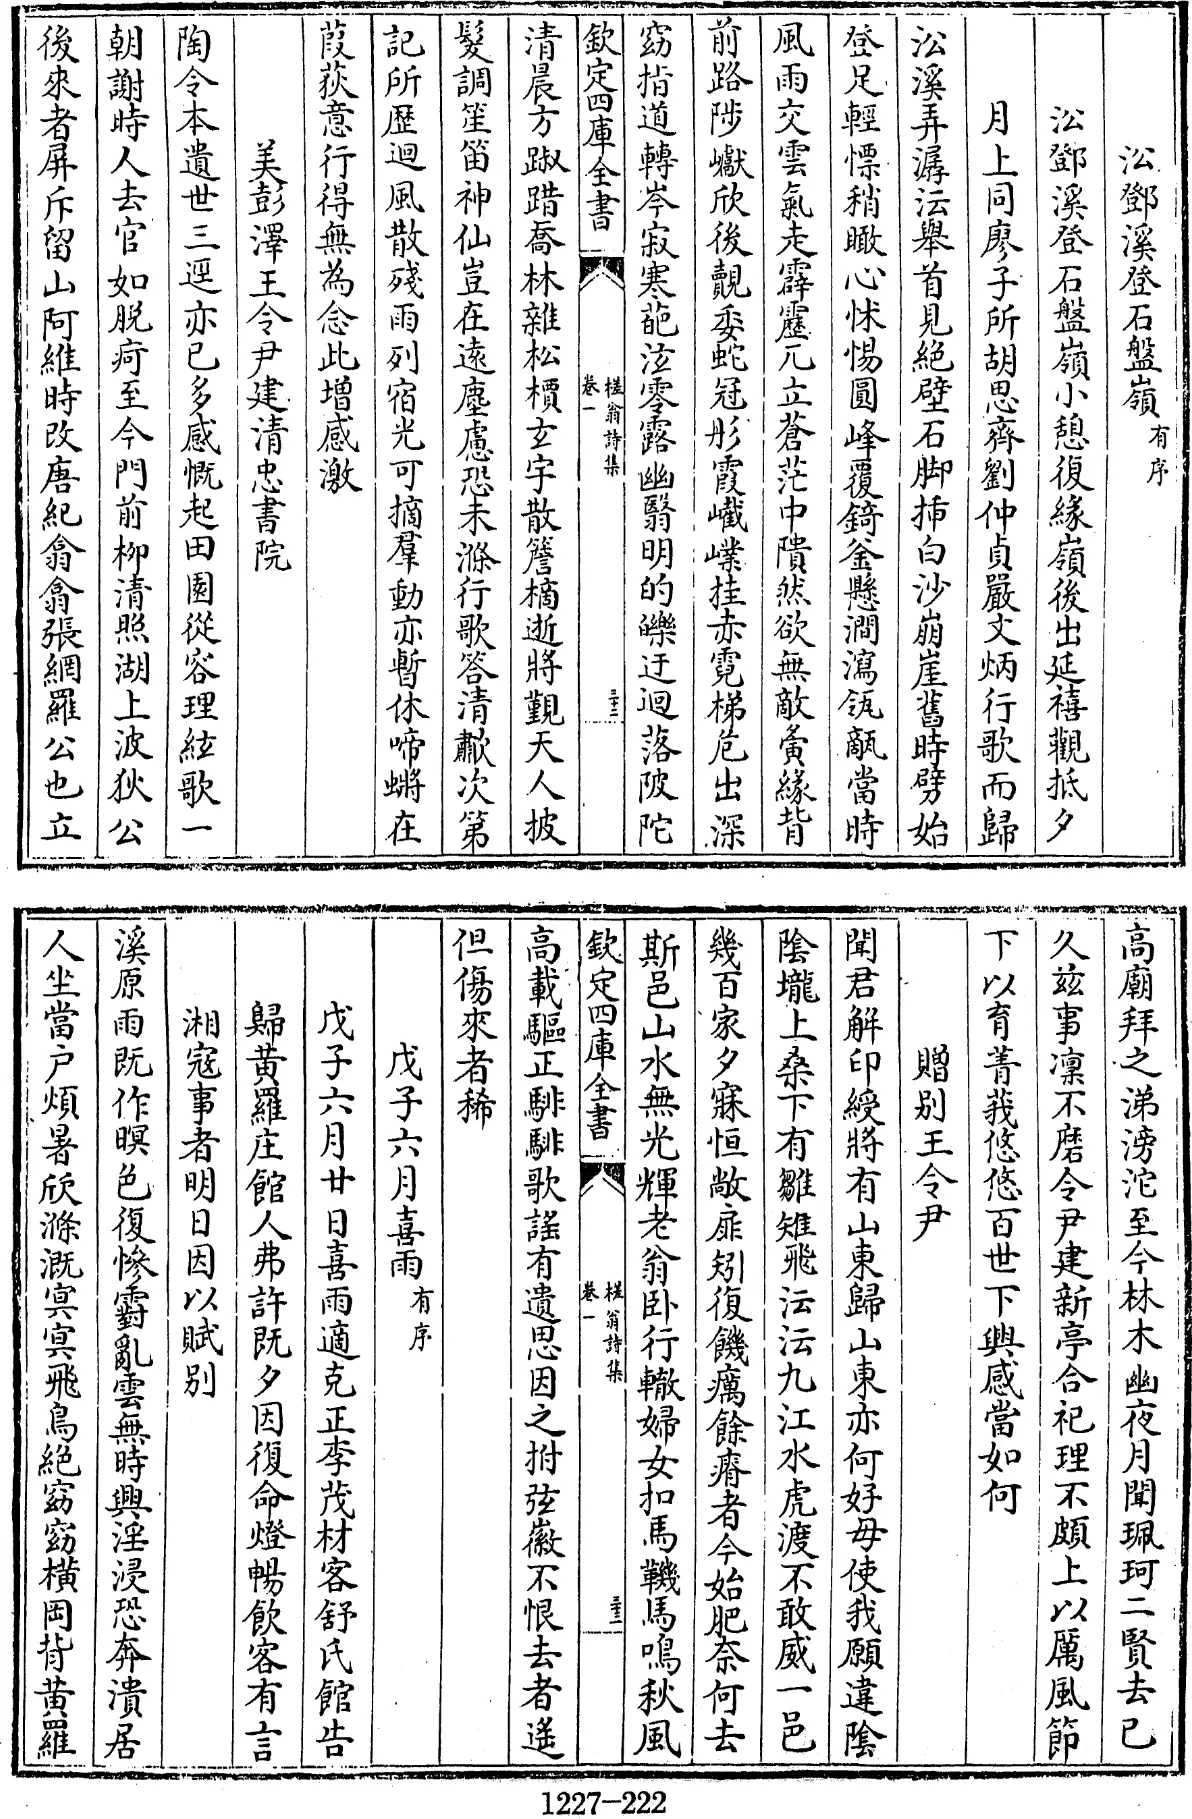 㳂鄧溪登石盤嶺有序
㳂鄧溪登石盤嶺小憩復緣嶺後出延禧觀抵夕
月上同廖子所胡思齊劉仲貞嚴文炳行歌而歸
㳂溪弄潺湲舉首見絕壁石脚揷白沙崩崖舊時劈始
登足輕慓稍瞰心怵惕圓峰覆錡釡懸澗瀉瓴甋當時
風雨交雲氣走霹靂兀立蒼茫中隤然欲無敵夤緣背
前路陟巘欣後覿委蛇冠彤霞巀嶪挂赤霓梯危出深
窈指道轉岑寂寒葩泫零露幽翳明的皪迂迴落陂陀
欽定四庫全書
槎翁詩集
卷一
三十二
清晨方踧踖喬林雜松檟玄宇散簷樀逝將觀天人披
髮調笙笛神仙豈在遠塵慮恐未滌行歌答清歗次第
記所歷迴風散殘雨列宿光可摘羣動亦暫休啼螿在
葭荻意行得無為念此增感激
美彭澤王令尹建清忠書院
陶令本遺世三逕亦已多感慨起田園從容理絃歌一
朝謝時人去官如脫疴至今門前栁清照湖上波狄公
後來者屏斥留山阿維時改唐紀翕翕張網羅公也立
高廟拜之涕滂沱至今林木幽夜月聞珮珂二賢去已
久兹事凜不磨令尹建新亭合祀理不頗上以厲風節
下以育菁莪悠悠百世下興感當如何
贈别王令尹
聞君解印綬將有山東歸山東亦何好毋使我願違陰
陰壠上桑下有雛雉飛沄沄九江水虎渡不敢威一邑
幾百家夕寐恒敞扉矧復饑癘餘瘠者今始肥奈何去
斯邑山水無光輝老翁卧行轍婦女扣馬鞿馬鳴秋風
欽定四庫全書
槎翁詩集
卷一
三十二
高載驅正騑騑歌謠有遺思因之拊弦徽不恨去者遥
但傷來者稀
戊子六月喜雨有序
戊子六月廿日喜雨適克正李茂材客舒氏館告
歸黄羅庄館人弗許既夕因復命燈暢飲客有言
湘寇事者明日因以賦别
溪原雨既作暝色復慘霨亂雲無時興淫浸恐奔潰居
人坐當户煩暑欣滌溉㝠㝠飛鳥絕窈窈橫岡背黄羅
1227—222